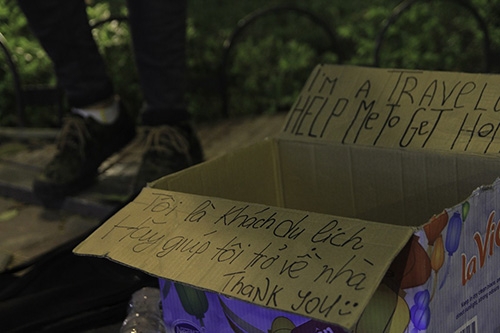 I'M A TRAVEL
HELP ME TO GET HO
Tôi là khách du lịch
Hãy giúp tôi trở về nhà
THANK YOU
la Vi